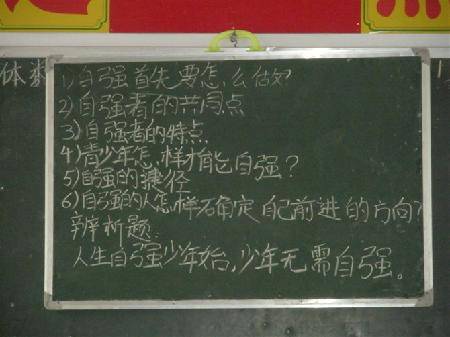 体
1)自强首先要怎么做?
2)自强者的共同点
3)自强者的特点
4)青少年怎样才能自强?
5)自强的捷径
6)自强的人怎样确定自己前进的方向?
辨析题:
人生自强少年始,少年无需自强。